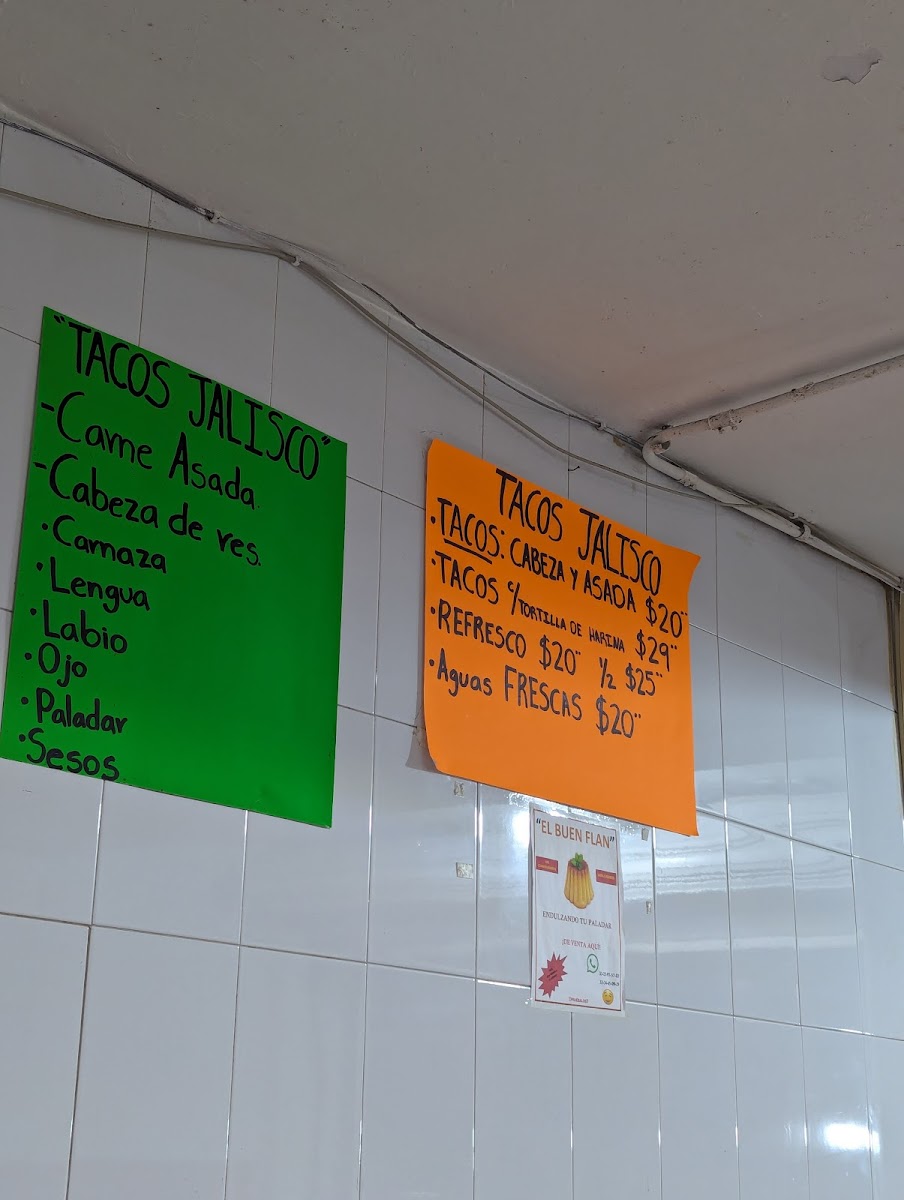 "TACOS JALISCO"
-Carne Asada.
-Cabeza de res.
·Carnaza
·Lengua
·Labio
·Ojo
·Paladar
·Sesos
TACOS JALISCO
·TACOS: CABEZA Y ASADA $20¨
·TACOS c/TORTILLA DE HARINA $29¨
·REFRESCO $20¨ ½ $25¨
·Aguas FRESCAS $20¨
"EL BUEN FLAN"
ENDULZANDO TU PALADAR
¡DE VENTA AQUÍ!